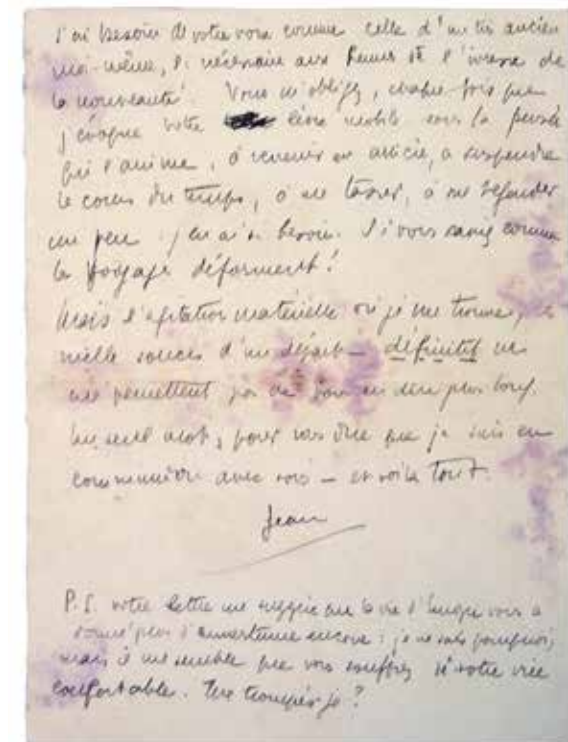 J'ai besoin de votre voix comme celle d'un très ancien
moi-même, si nécessaire aux heures de l'ivresse de
la nouveauté. Vous m'obligez, chaque fois que
j'évoque votre lèvre mobile sous la pensée
qui l'anime, à revenir en arrière, à suspendre
le cours du temps, à me tasser, à me regarder
un peu : j'en ai besoin. Si vous saviez comme
les voyages déforment !
Mais l'agitation matérielle où je me trouve,
mille soucis d'un départ définitif ne
me permettent pas de vous en dire plus long.
Un seul mot, pour vous dire que je suis en
communion avec vous — et voilà tout.
Jean
P.S. votre lettre me suggère que la vie d'Europe vous a
donné plus d'amertume encore : je ne sais pourquoi,
mais il me semble que vous souffrez de votre vie
confortable. Me trompé-je ?